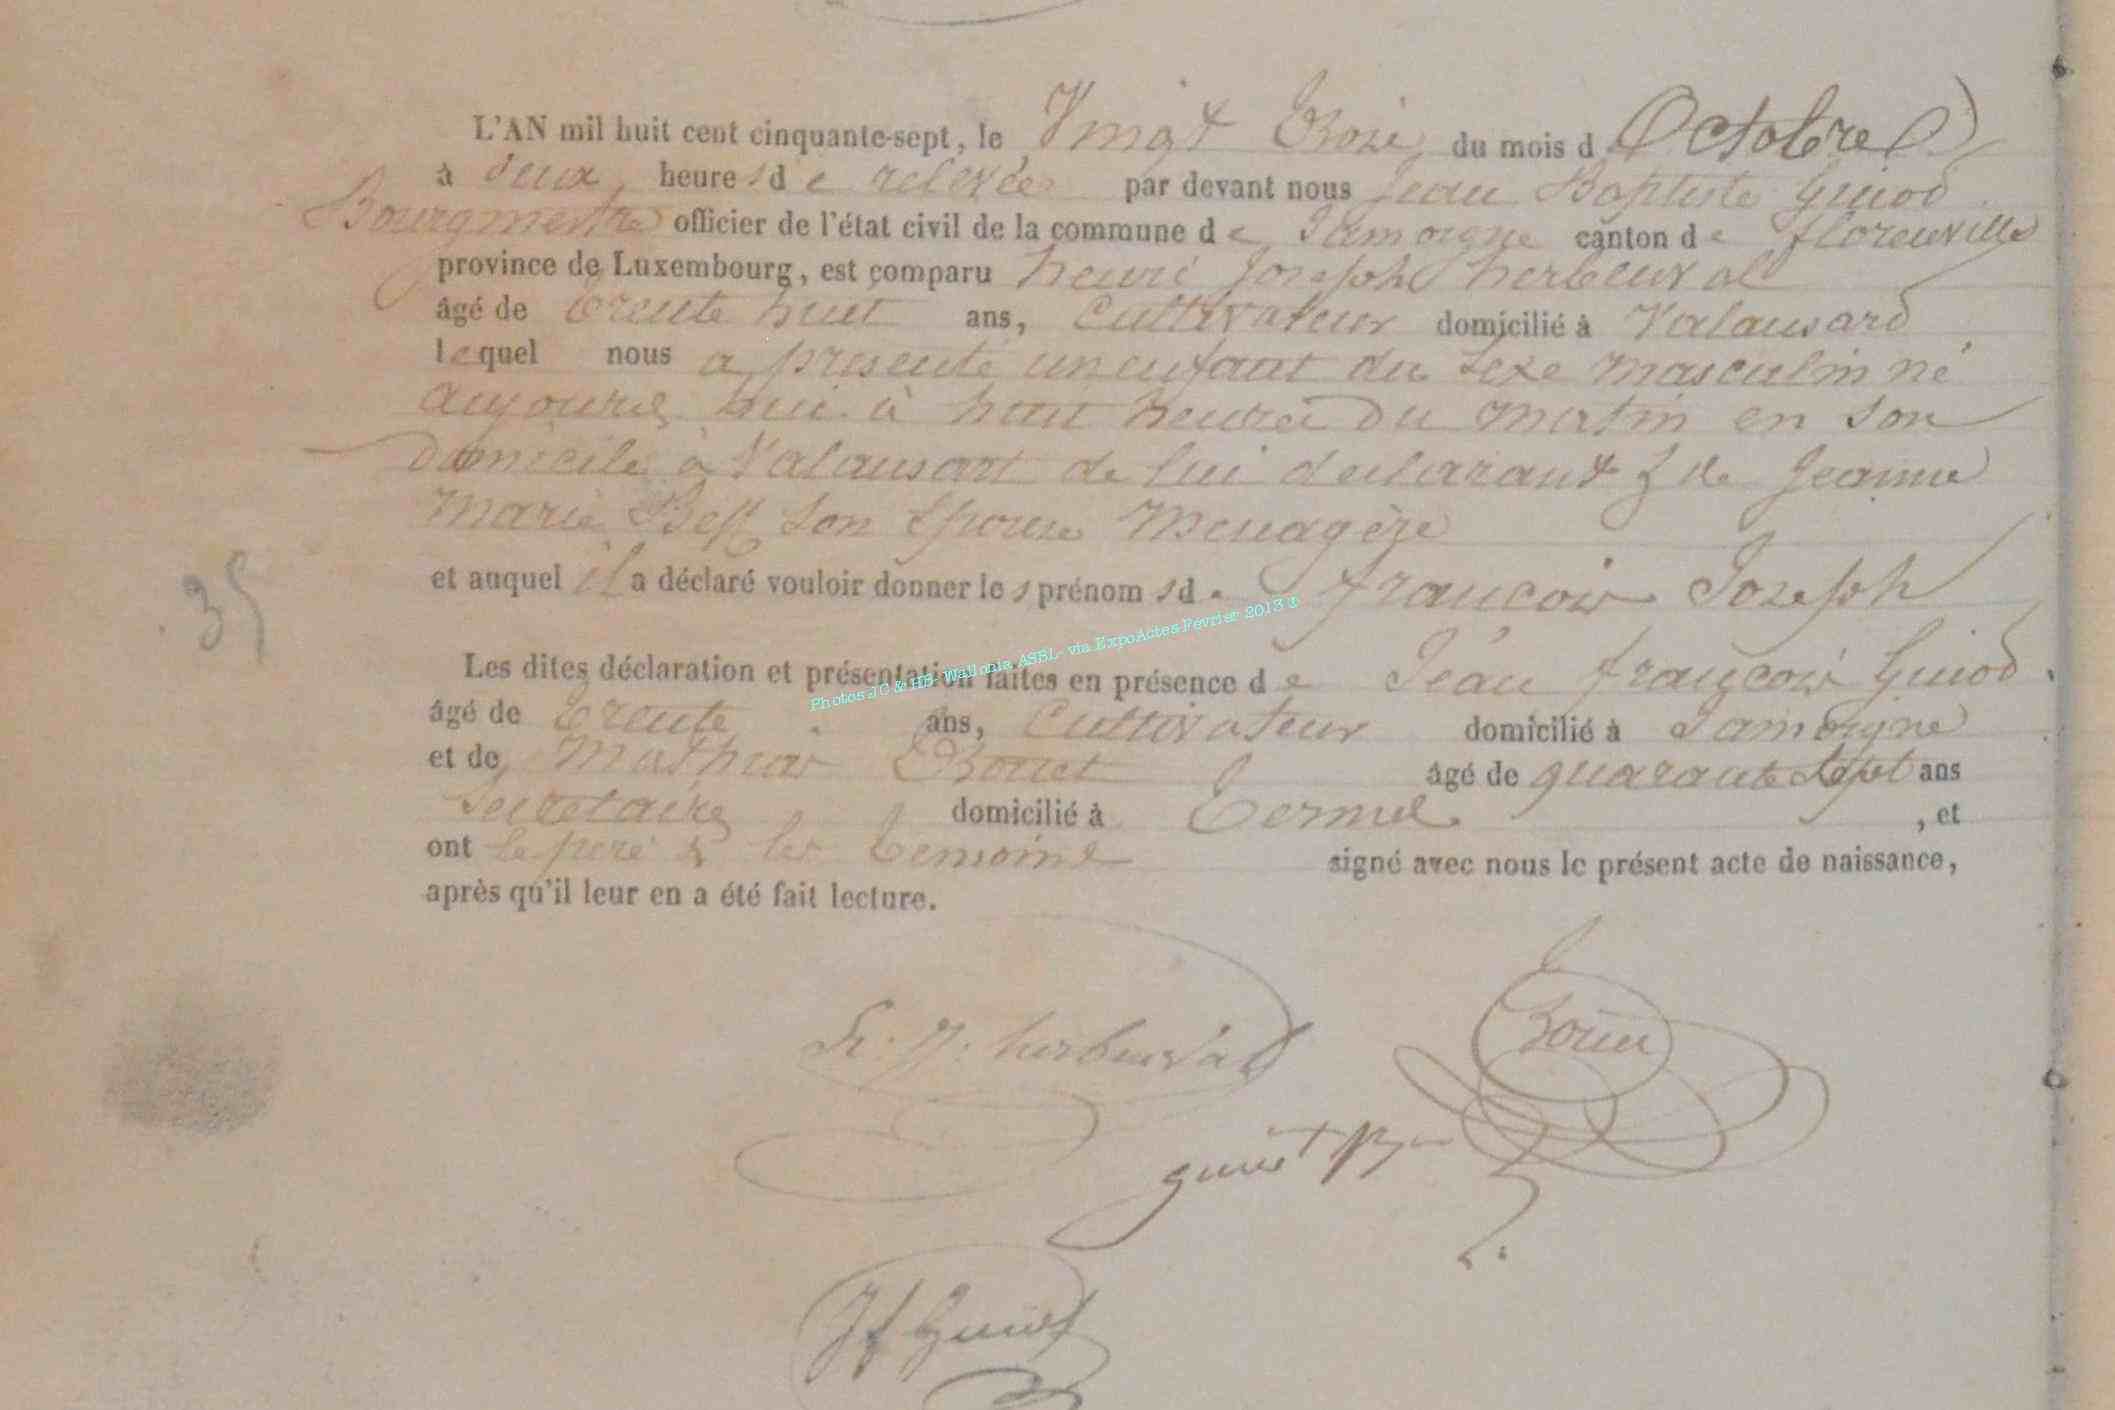 L'AN mil huit cent cinquante-sept, le Vingt Trois du mois d Octobre
à deux heure s d e relevée par devant nous Jean Baptiste Guiod
Bourgmestre officier de l'état civil de la commune d e Jamoigne canton d e florenville
province de Luxembourg, est comparu henri Joseph herbeuval
âgé de trente huit ans, Cultivateur domicilié à Valansard
le quel nous a presenté un enfant du sexe masculin né
aujourd hui à huit heures du matin en son
domicile à Valansart de lui declarant & de Jeanne
Marie son Epouse Menagère
et auquel il a déclaré vouloir donner le s prénom s d e françois Joseph
35
Les dites déclaration et présentation faites en présence d e Jean françois Guiod
Photos JC & HB- Wallonia ASBL- via ExpoActes Février 2013 ®
âgé de trente ans, Cultivateur domicilié à Jamoigne
et de Mathieu âgé de quarante sept ans
secretaire domicilié à Termel , et
ont le pere & les temoins signé avec nous le présent acte de naissance,
après qu'il leur en a été fait lecture.
h. J. herbeuval
Jf Guiod